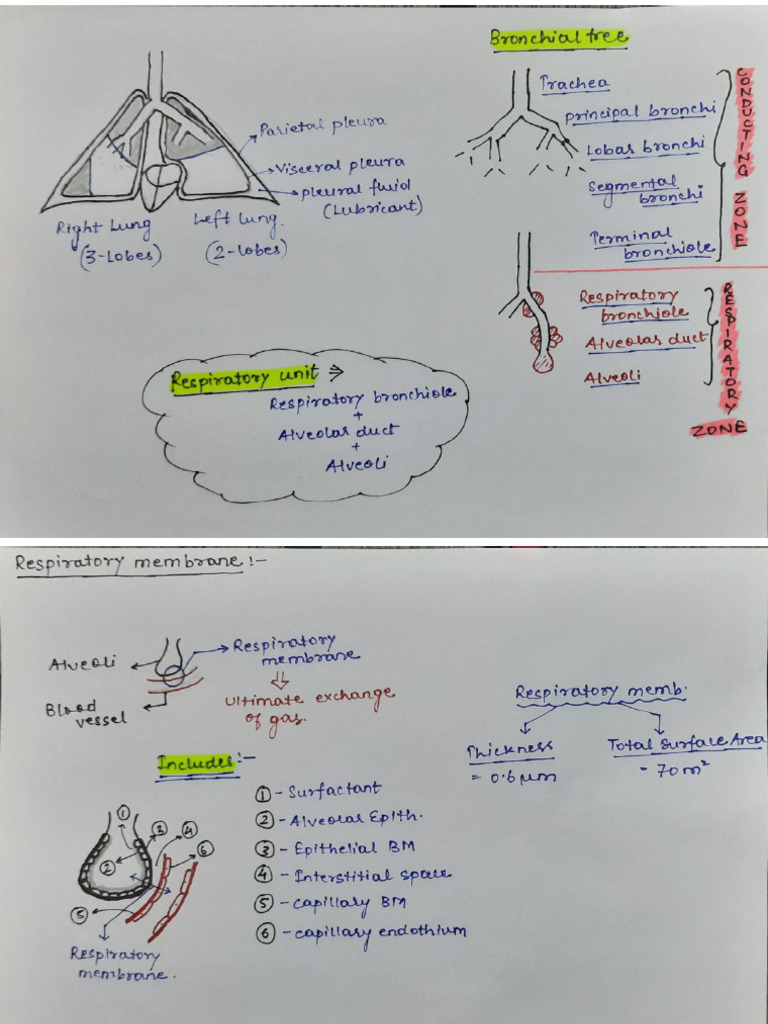 Parietal pleura
Visceral pleura
pleural fluid
(Lubricant)
Right Lung
(3-Lobes)
Left lung.
(2-lobes)
Bronchial tree
Trachea
principal bronchi
Lobar bronchi
Segmental
bronchi
Terminal
bronchiole
CONDUCTING ZONE
Respiratory
bronchiole
Alveolar duct
Alveoli
RESPIRATORY
ZONE
Respiratory unit ⇒
Respiratory bronchiole
+
Alveolar duct
+
Alveoli
Respiratory membrane :-
Alveoli
Blood
vessel
Respiratory
membrane
ultimate exchange
of gas.
Respiratory memb.
Thickness
= 0.6 μm
Total Surface Area
- 70 m²
Includes :-
① - Surfactant
② - Alveolar Epith.
③ - Epithelial BM
④ - Interstitial space
⑤ - Capillary BM
⑥ - capillary endothium
①
③
④
⑥
②
⑤
Respiratory
membrane.